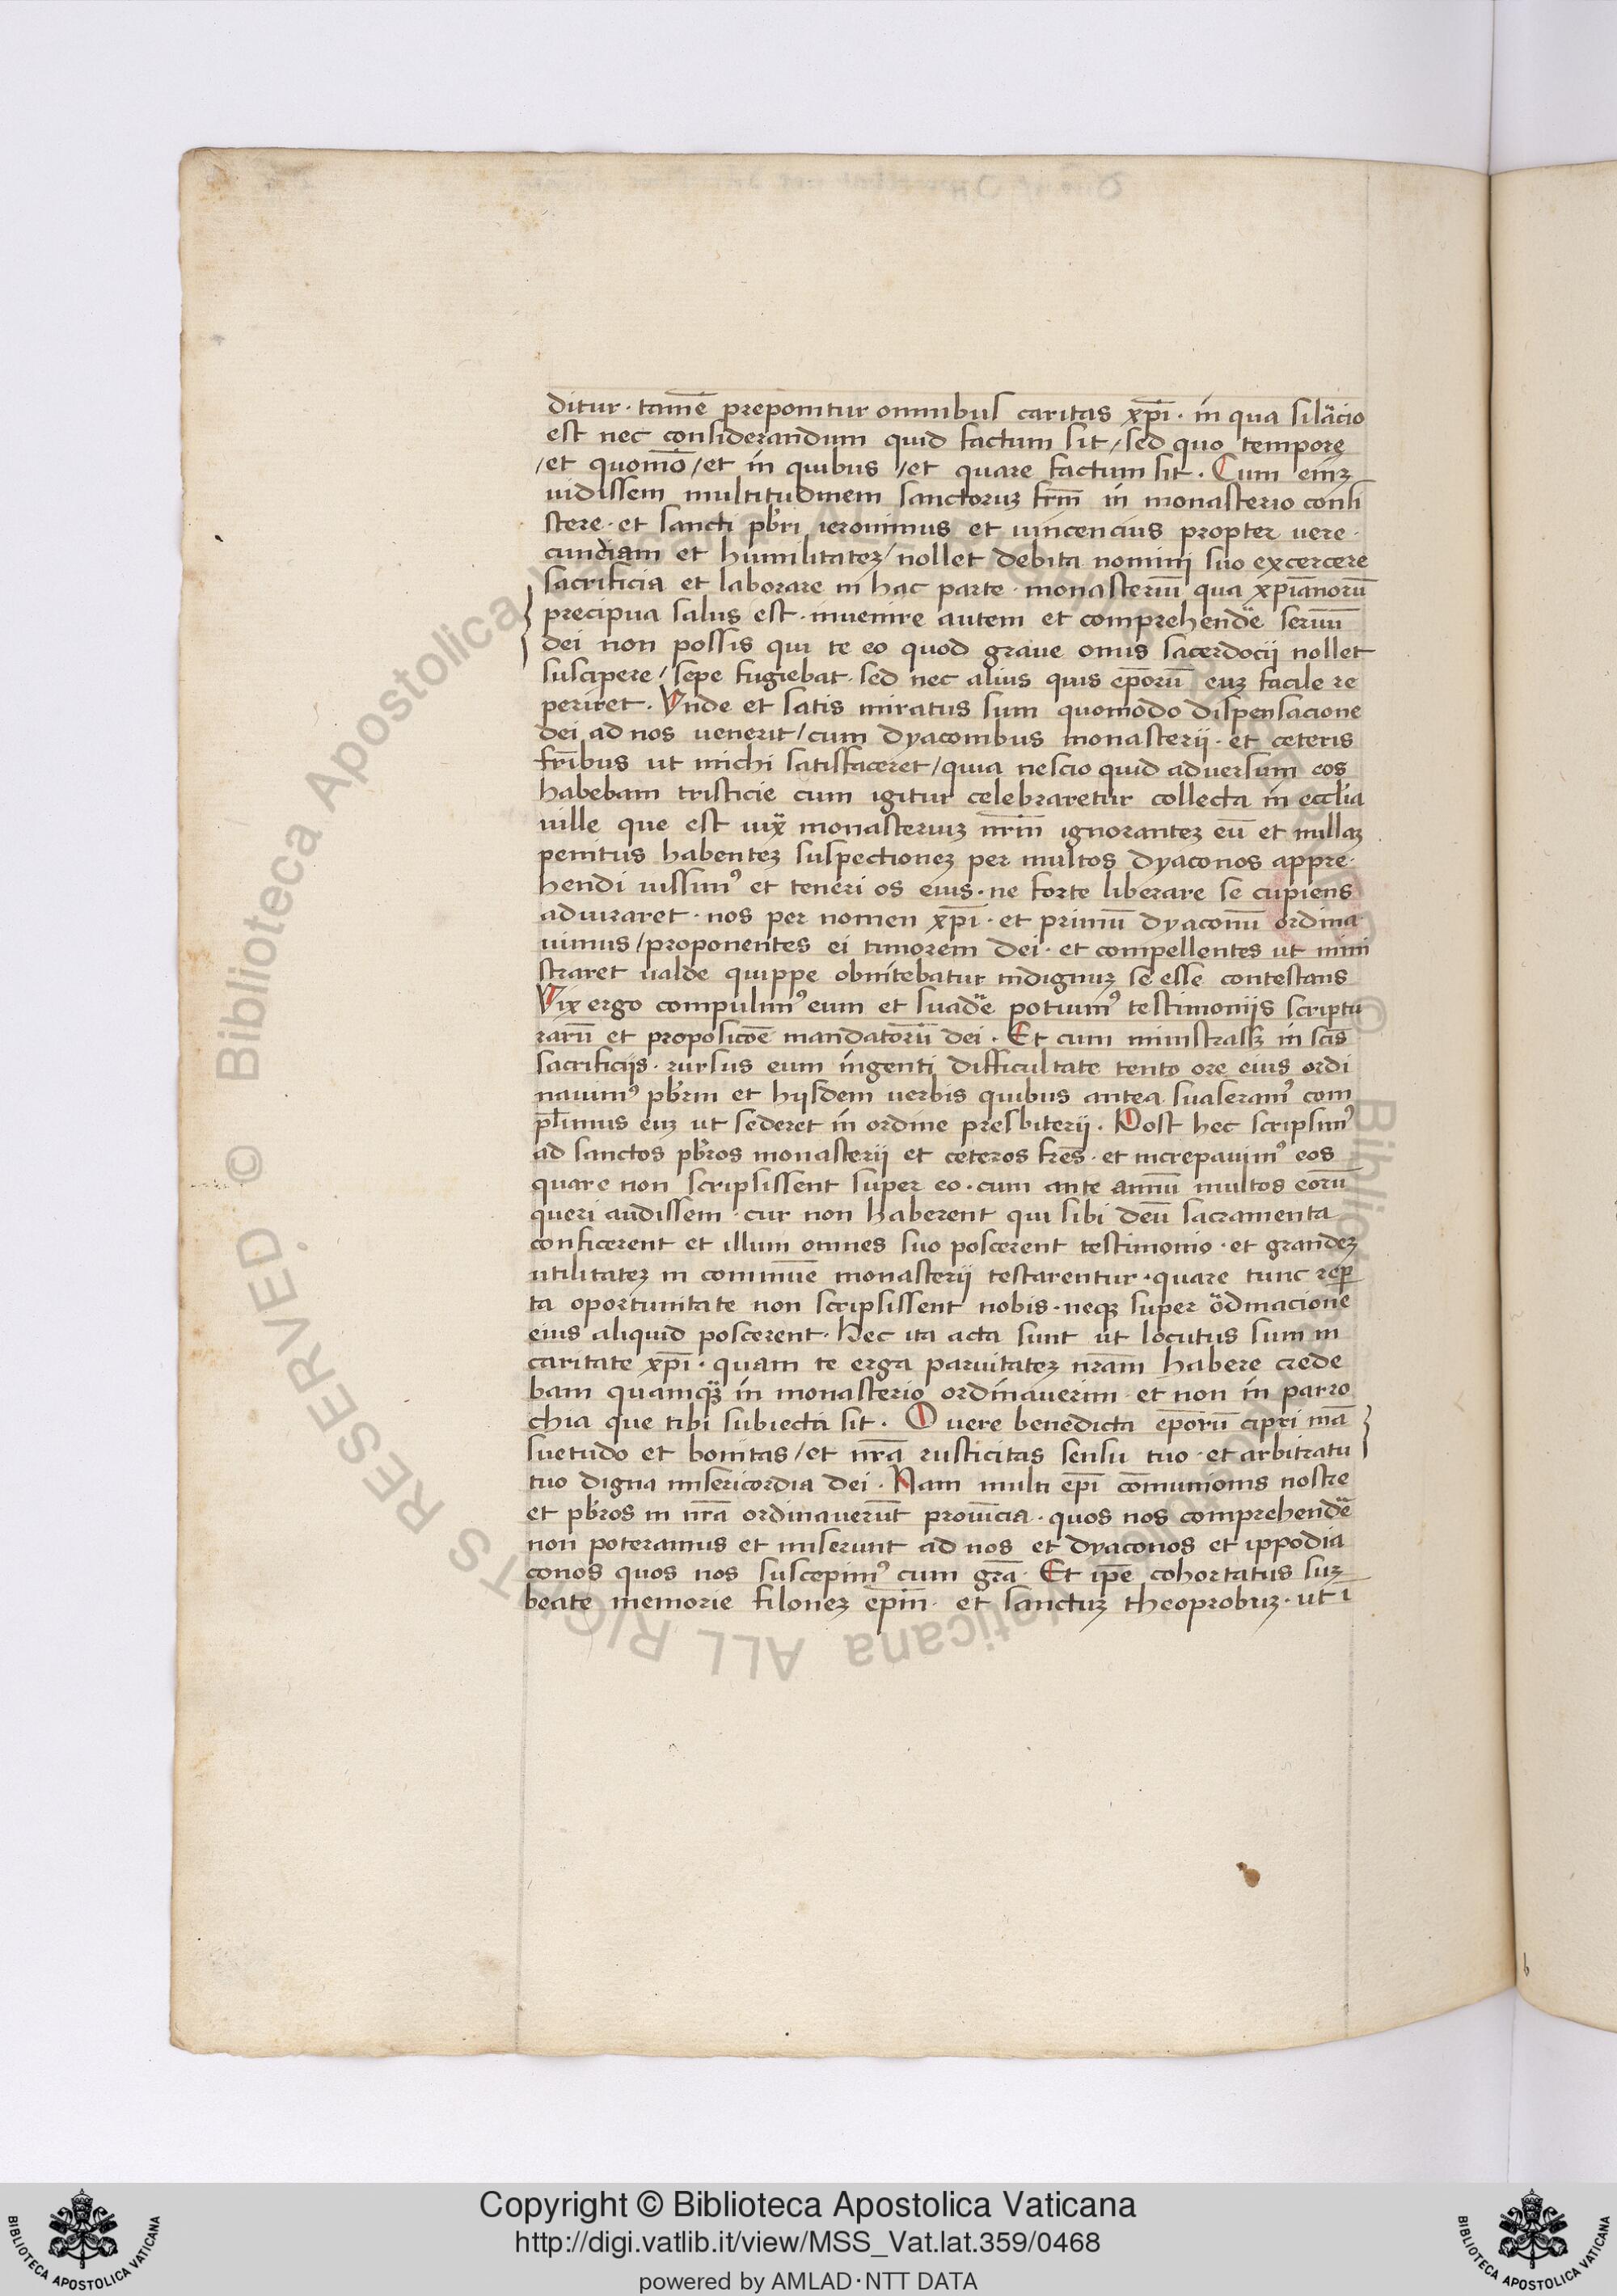 ditur · tamē preponitur omnibus caritas xp̄i · in qua silacio
est nec considerandum quid factum sit / sed quo tempore
/ et quomō / et in quibus / et quare factum sit · Cum eniꝫ
uidissem multitudinem sanctoruꝫ frm̄ in monasterio consi
stere · et sancti pbr̄i ieronimus et uincencius propter uere ·
cundiam et humilitateꝫ / nollet debita nomini suo excercere
sacrificia et laborare in hac parte · monasteriū qua xp̄ianorū
precipua salus est · inuenire autem et comprehendē seruū
dei non possis qui te eo quod graue onus sacerdocij nollet
suscipere / sepe fugiebat · sed nec alius quis ep̄orū euꝫ facile re
periret · Vnde et satis miratus sum quomodo dispensacione
dei ad nos uenerit / cum dyaconibus monasterij · et ceteris
fr̄ibus ut michi satisfaceret / quia nescio quid aduersum eos
habebam tristicie cum igitur celebraretur collecta in eccl̄ia
uille que est iux̄ monasteriuꝫ nr̄m ignoranteꝫ eū et nullaꝫ
penitus habenteꝫ suspectioneꝫ per multos dyaconos appre ·
hendi iussimꝰ et teneri os eius · ne forte liberare se cupiens
adiuraret · nos per nomen xp̄i · et primū dyaconū ordina
uimus / proponentes ei timorem dei · et compellentes ut mini
straret ualde quippe obnitebatur indignuꝫ se esse contestans
Vix ergo compulimꝰ eum et suadē potuimꝰ testimonijs scriptu
rarū et proposicōe mandatorū dei · Et cum ministrasꝫ in scīs
sacrificijs · rursus eum ingenti difficultate tento ore eius ordi
nauimꝰ pbr̄m et hijsdem uerbis quibus antea suaseramꝰ com
pl̄imus euꝫ ut sederet in ordine presbiterij · Post hec scripsimꝰ
ad sanctos pbr̄os monasterij et ceteros fr̄es · et increpauimꝰ eos
quare non scripsissent super eo · cum ante annū multos eorū
queri audissem · cur non haberent qui sibi deū sacramenta
conficerent et illum omnes suo poscerent testimonio · et grandeꝫ
utilitateꝫ in commūe monasterij testarentur · quare tunc rep̄
ta oportunitate non scripsissent nobis · neqꝫ super ōdinacione
eius aliquid poscerent · Hec ita acta sunt ut locutus sum in
caritate xp̄i · quam te erga paruitateꝫ nr̄am habere crede
bam quamqꝫ in monasterio ordinauerim · et non in parro
chia que tibi subiecta sit · O uere benedicta ep̄orū cipri mā
suetudo et bonitas / et nr̄a rusticitas sensu tuo · et arbitratu
tuo digna misericordia dei · Nam multi ep̄i cōmunionis nostre
et pbr̄os in nr̄a ordinauerūt prouīcia · quos nos comprehendē
non poteramus et miserunt ad nos et dyaconos et ippodia
conos quos nos suscepimꝰ cum gr̄a · Et ip̄e cohortatus suꝫ
beate memorie filoneꝫ ep̄m · et sanctuꝫ theoprobuꝫ · ut ī
© Biblioteca Apostolica Vaticana ALL RIGHTS RESERVED
Copyright © Biblioteca Apostolica Vaticana
http://digi.vatlib.it/view/MSS_Vat.lat.359/0468
powered by AMLAD·NTT DATA
BIBLIOTECA APOSTOLICA VATICANA
BIBLIOTECA APOSTOLICA VATICANA